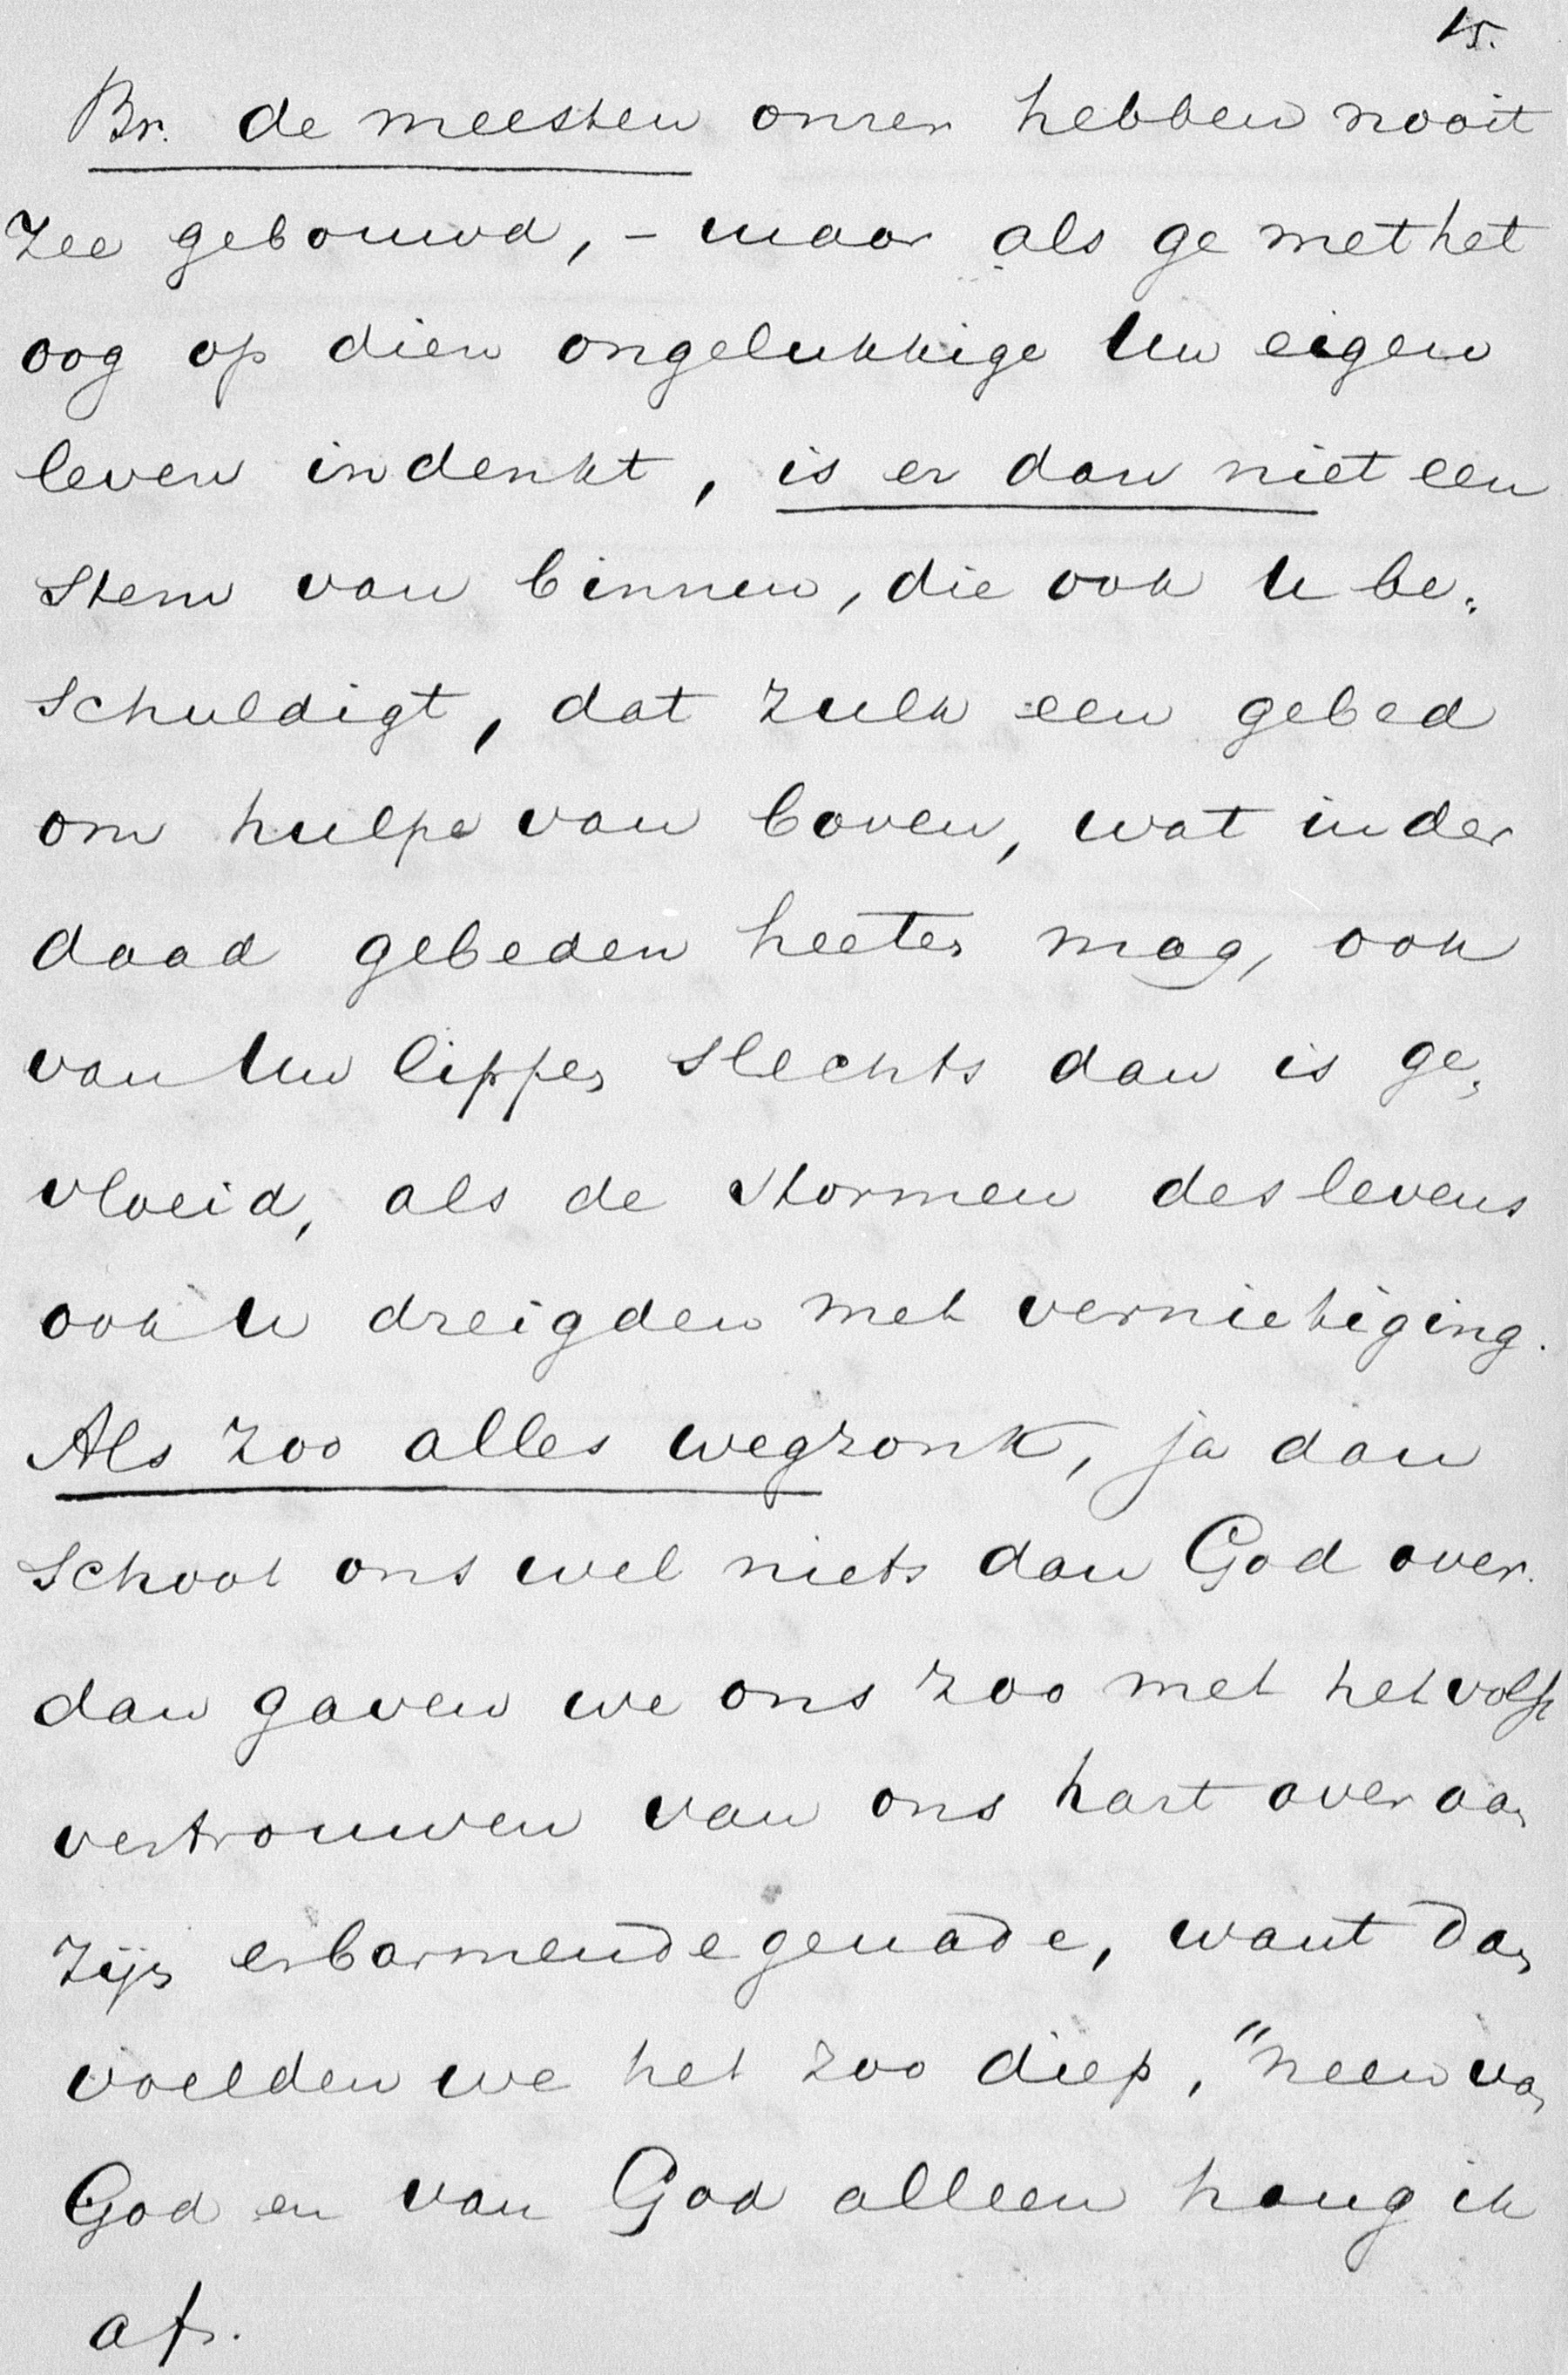 15.
Br. de meesten onzer hebben nooit
zee gebouwd, - maar als ge met het
oog op dien ongelukkige Uw eigen
leven indenkt, is er dan niet een
stem van binnen, die ook U be„
schuldigt, dat zulk een gebed
om hulpe van boven, wat in der
daad gebeden heeten mag, ook
van Uw lippen slechts dan is ge„
vloeid, als de stormen des levens
ook U dreigden met vernietiging.
Als zoo alles wegzonk, ja dan
schoot ons wel niets dan God over.
dan gaven we ons zoo met het volst
vertrouwen van ons hart over aan
zijn erbarmende genade, want dan
voelden we het zoo diep, "neen van
God en van God alleen hang ik
af.